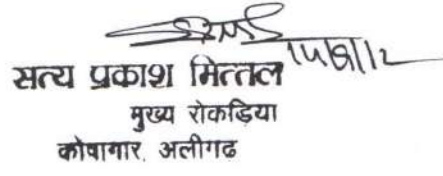 सत्य प्रकाश मित्तल
मुख्य रोकडिया
कोषागार. अलीगढ